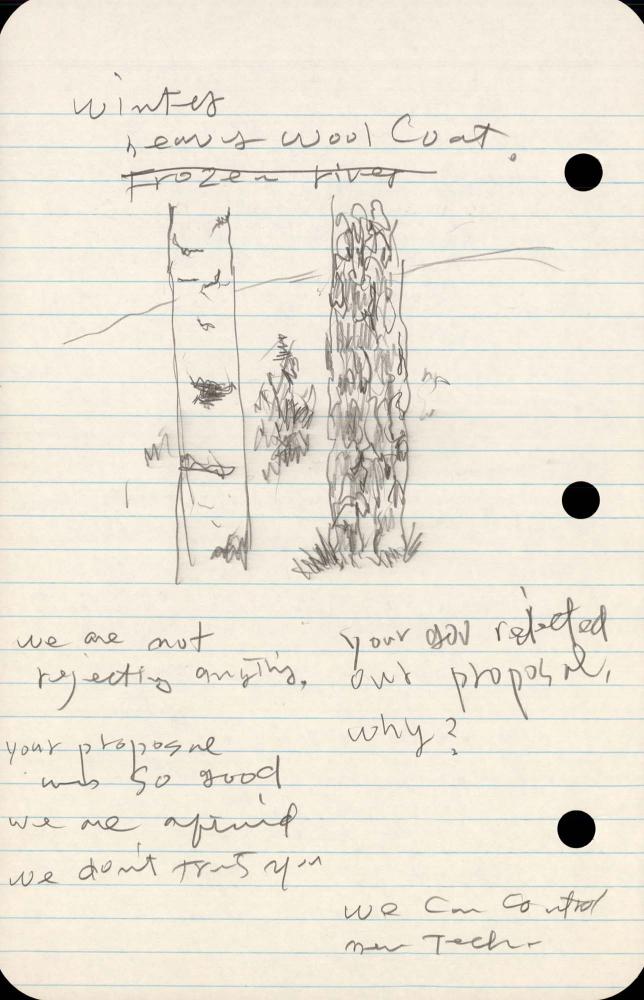 Winter
heavy wool Coat.
Frozen river
we are not
rejecting anything.
your proposal
was so good
we are afraid
we don't trust you
your gov rejected
our proposal,
why?
we can control
new Tech.